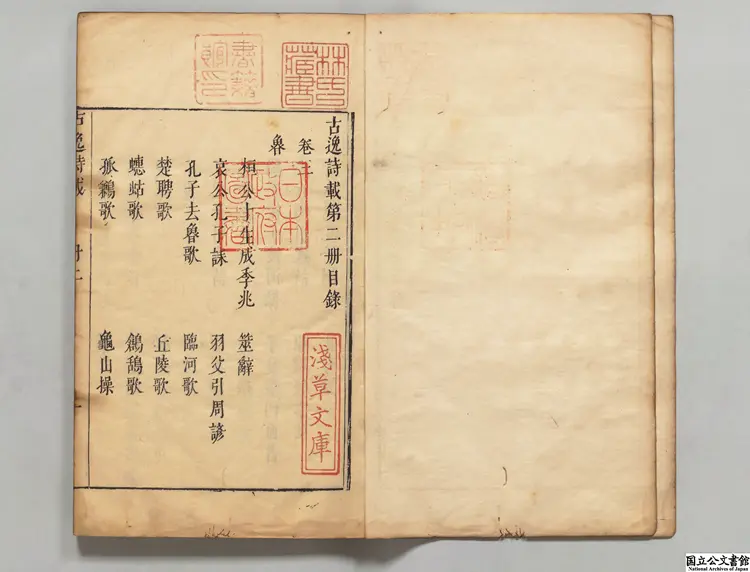 書籍館印
林氏藏書
古逸詩載第二冊目錄
卷三
魯
桓公卜生成季兆 筮辭
哀公孔子誄 羽父引周諺
孔子去魯歌 臨河歌
楚聘歌 丘陵歌
蟪蛄歌 鶬鴰歌
歌 龜山操
古逸詩載
日本政府圖書
淺草文庫
国立公文書館
National Archives of Japan